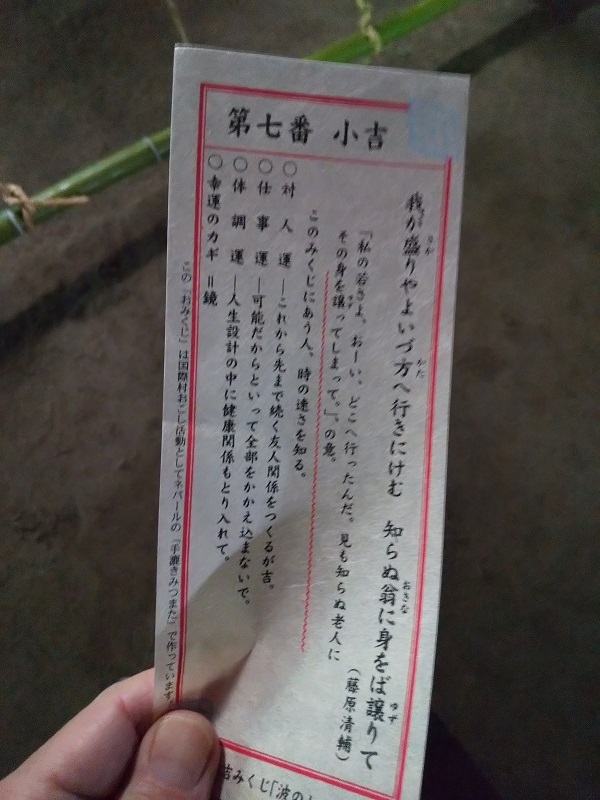 第七番 小吉
我が盛りやよいづ方へ行きにけむ 知らぬ翁に身をば譲りて
(藤原清輔)
『私の若さよ、おーい、どこへ行ったんだ。見も知らぬ老人に
その身を譲ってしまって。』の意。
このみくじにあう人、時の速さを知る。
○対人運―これから先まで続く友人関係をつくるが吉。
○仕事運―可能だからといって全部をかかえ込まないで。
○体調運―人生設計の中に健康関係もとり入れて。
○幸運のカギ=鏡
この『おみくじ』は国際村おこし活動としてネパールの『手漉きみつまた』で作っています
吉みくじ「波の